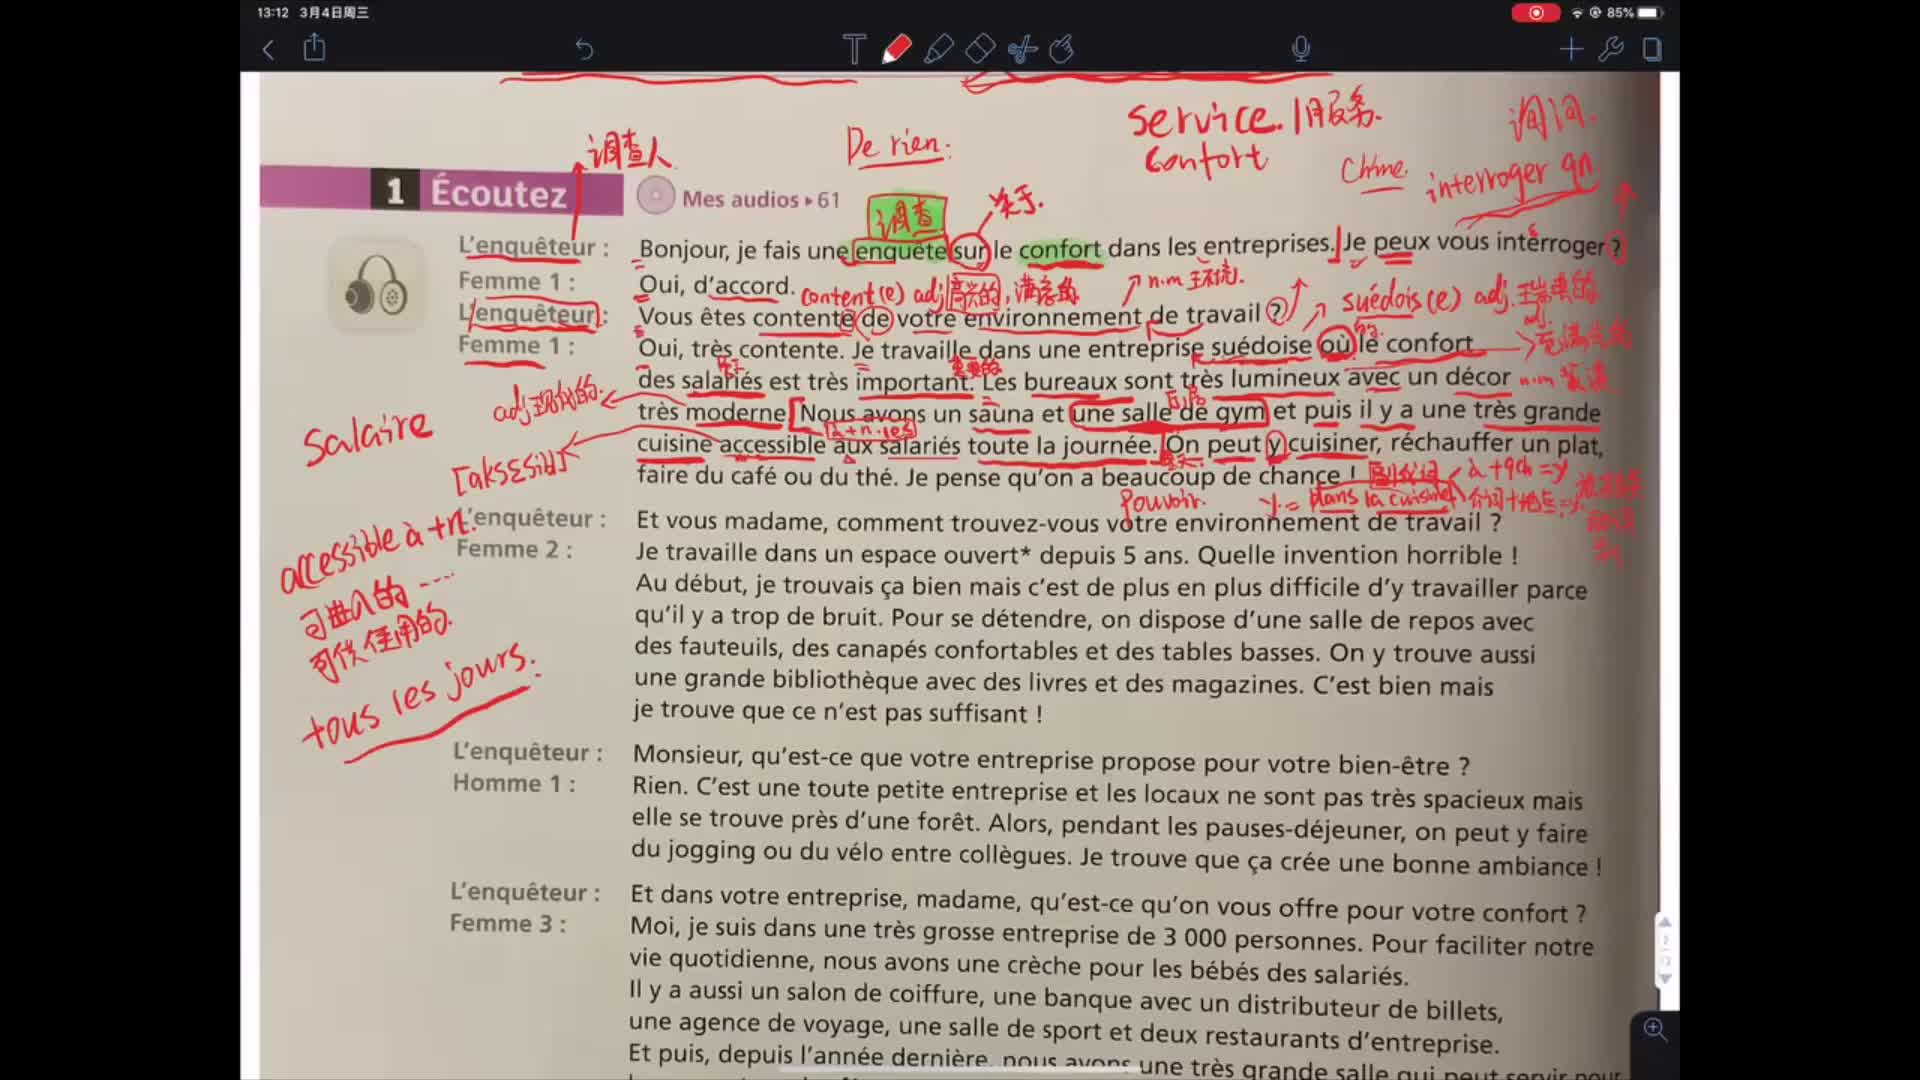 13:12 3月4日周三
85%
service. 服务.
询问.
调查人
De rien.
confort
Chine.
interroger qn
1 Écoutez
Mes audios ▸ 61
调查
关于.
L'enquêteur : Bonjour, je fais une enquête sur le confort dans les entreprises. Je peux vous interroger ?
Femme 1 : Oui, d'accord.
content(e) adj 高兴的, 满意的
n.m 环境.
suédois(e) adj. 瑞典的
L'enquêteur : Vous êtes contente de votre environnement de travail ?
Femme 1 : Oui, très contente. Je travaille dans une entreprise suédoise où le confort
重要的
des salariés est très important. Les bureaux sont très lumineux avec un décor
n.m 装潢
adj 现代的.
très moderne. Nous avons un sauna et une salle de gym et puis il y a une très grande
Salaire
à + n. les
cuisine accessible aux salariés toute la journée. On peut y cuisiner, réchauffer un plat,
[aksɛsibl]
faire du café ou du thé. Je pense qu'on a beaucoup de chance !
副代词
à + qch = y
pouvoir.
y = dans la cuisine
介词+地点=y.
accessible à + n.
可进入的 ....
可供使用的.
tous les jours.
L'enquêteur : Et vous madame, comment trouvez-vous votre environnement de travail ?
Femme 2 : Je travaille dans un espace ouvert* depuis 5 ans. Quelle invention horrible !
Au début, je trouvais ça bien mais c'est de plus en plus difficile d'y travailler parce
qu'il y a trop de bruit. Pour se détendre, on dispose d'une salle de repos avec
des fauteuils, des canapés confortables et des tables basses. On y trouve aussi
une grande bibliothèque avec des livres et des magazines. C'est bien mais
je trouve que ce n'est pas suffisant !
L'enquêteur : Monsieur, qu'est-ce que votre entreprise propose pour votre bien-être ?
Homme 1 : Rien. C'est une toute petite entreprise et les locaux ne sont pas très spacieux mais
elle se trouve près d'une forêt. Alors, pendant les pauses-déjeuner, on peut y faire
du jogging ou du vélo entre collègues. Je trouve que ça crée une bonne ambiance !
L'enquêteur : Et dans votre entreprise, madame, qu'est-ce qu'on vous offre pour votre confort ?
Femme 3 : Moi, je suis dans une très grosse entreprise de 3 000 personnes. Pour faciliter notre
vie quotidienne, nous avons une crèche pour les bébés des salariés.
Il y a aussi un salon de coiffure, une banque avec un distributeur de billets,
une agence de voyage, une salle de sport et deux restaurants d'entreprise.
Et puis, depuis l'année dernière, nous avons une très grande salle qui peut servir pour